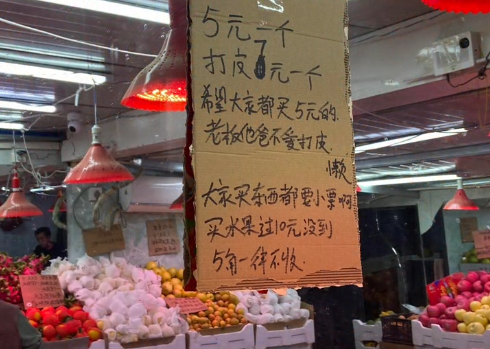 5元一个
打皮7元一个
希望大家都买5元的
老板他爸不爱打皮
懒
大家买东西都要小票啊
买水果过10元没到
5角一律不收